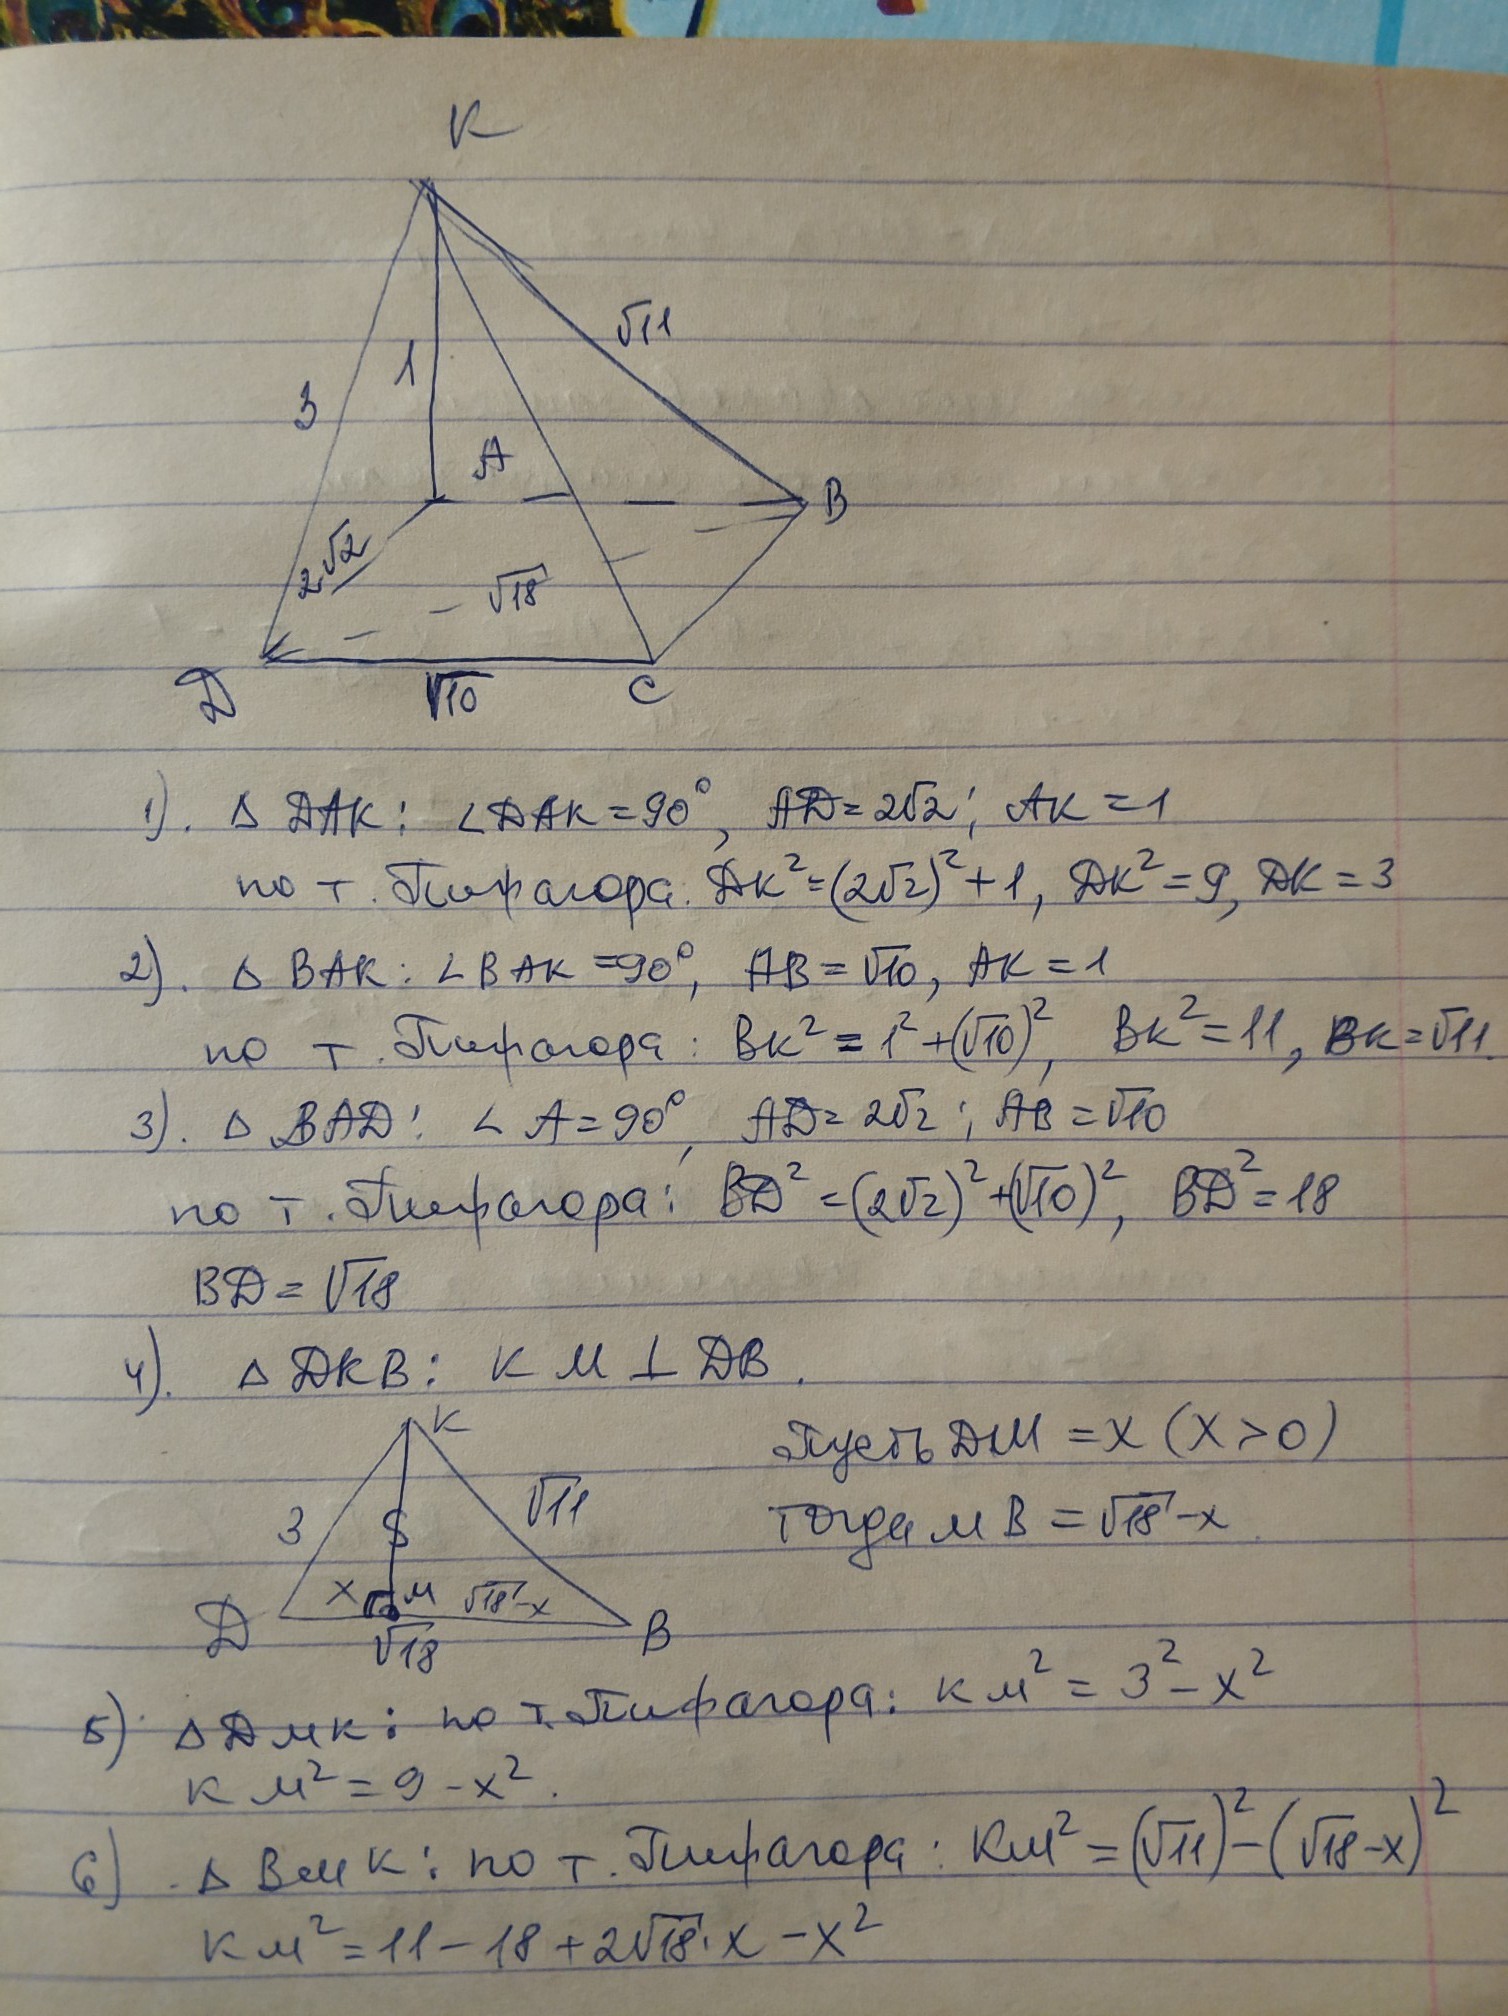 К
√11
3
1
A
B
2√2
√18
D
√10
C
1). Δ DAK: ∠DAK = 90°, AD = 2√2; AK = 1
по т. Пифагора: DK² = (2√2)² + 1, DK² = 9, DK = 3
2). Δ BAK: ∠BAK = 90°, AB = √10, AK = 1
по т. Пифагора: BK² = 1² + (√10)², BK² = 11, BK = √11.
3). Δ BAD: ∠A = 90°, AD = 2√2; AB = √10
по т. Пифагора: BD² = (2√2)² + (√10)², BD² = 18
BD = √18
4). Δ DKB: KM ⊥ DB.
K
Пусть DM = x (x > 0)
√11
3
тогда MB = √18 - x
x
M
√18 - x
D
√18
B
5) Δ DMK: по т. Пифагора: KM² = 3² - x²
KM² = 9 - x².
6) Δ BMK: по т. Пифагора: KM² = (√11)² - (√18 - x)²
KM² = 11 - 18 + 2√18·x - x²